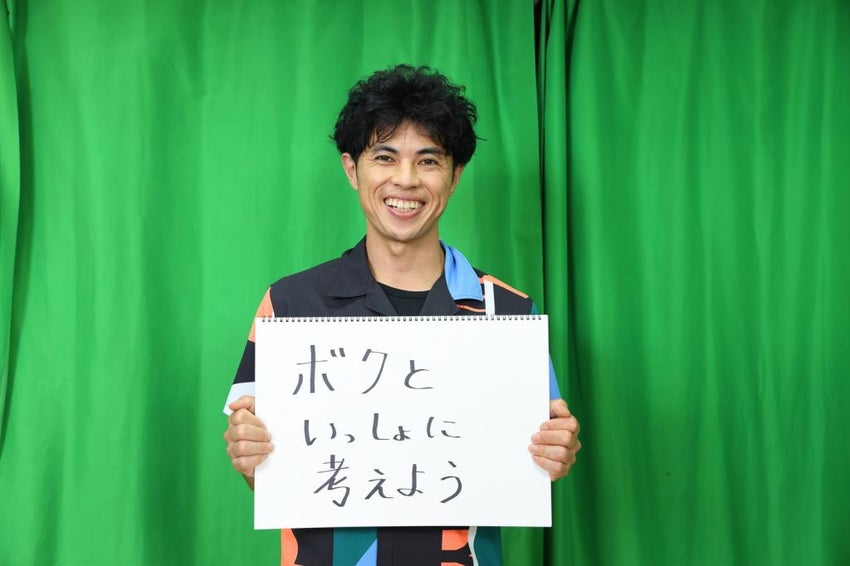 ボクと
いっしょに
考えよう